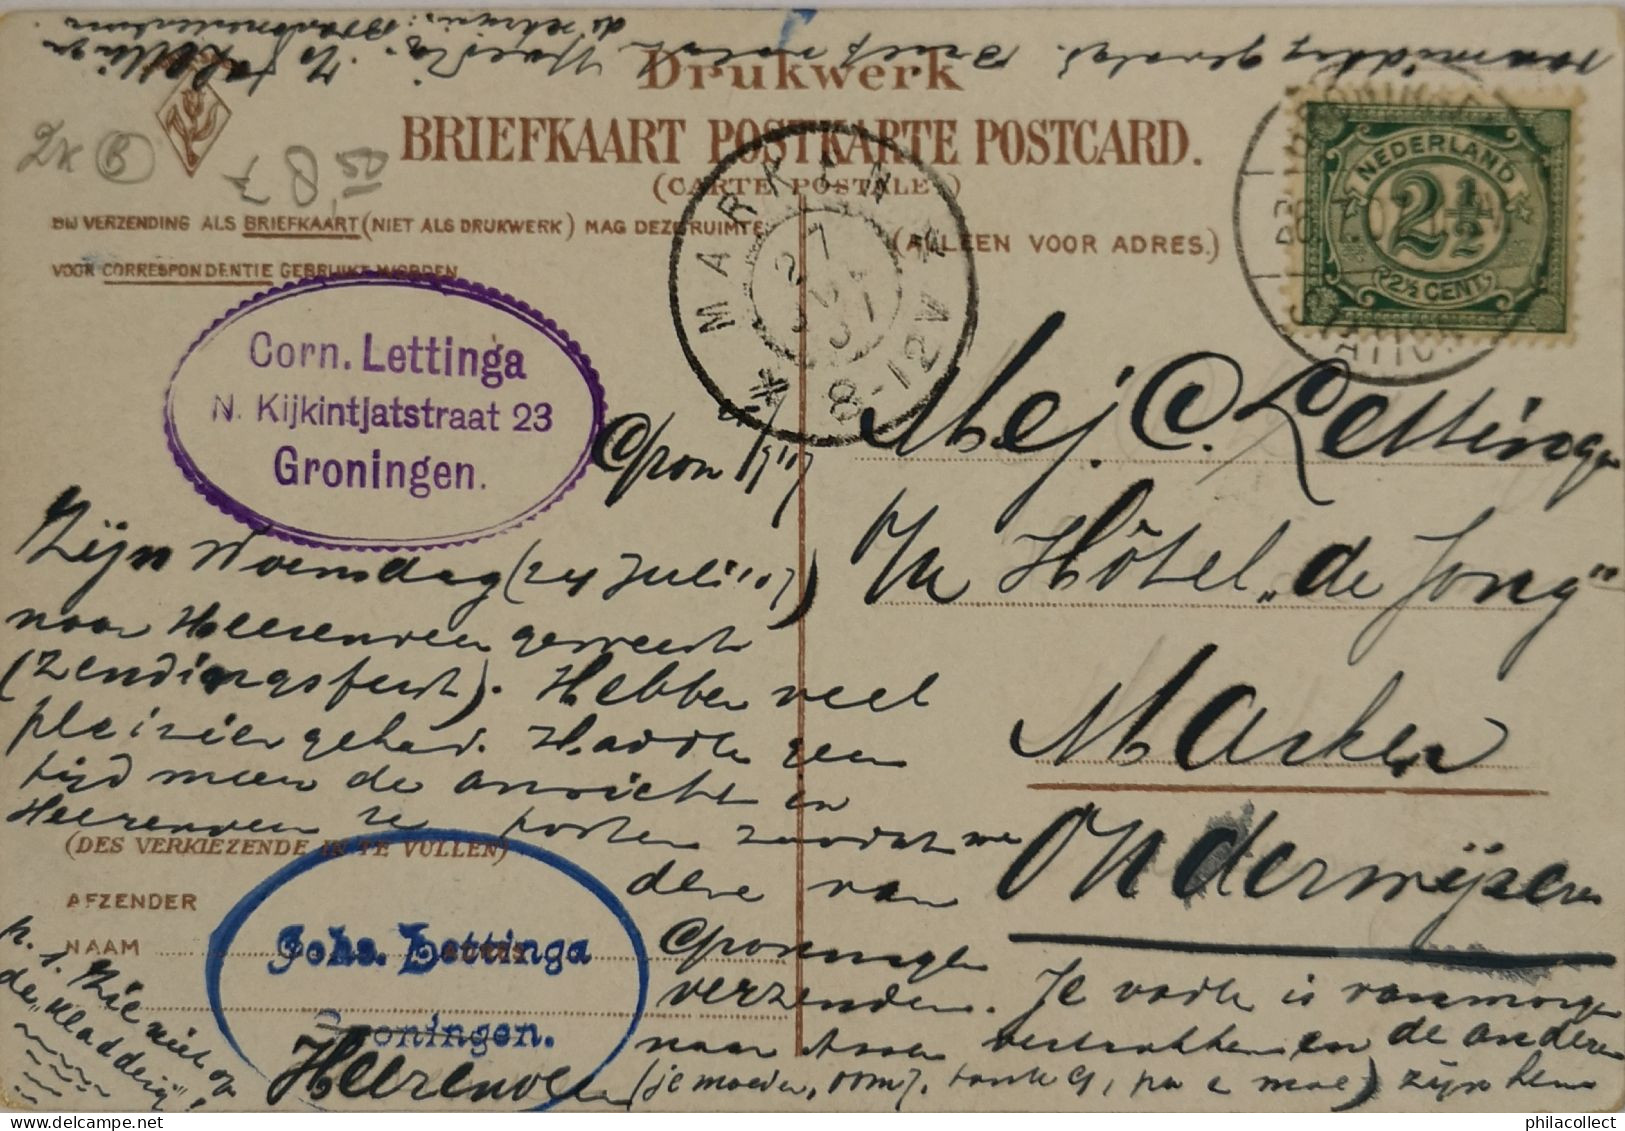 Drukwerk
BRIEFKAART POSTKARTE POSTCARD.
(CARTE POSTALE)
BIJ VERZENDING ALS BRIEFKAART (NIET ALS DRUKWERK) MAG DEZE RUIMTE
VOOR CORRESPONDENTIE GEBRUIKT WORDEN
(ALLEEN VOOR ADRES.)
2x B
8,50
NEDERLAND
2½
(2½ CENT)
GRONINGEN
STATION
MARKEN
27 JUL 07
8-12V
Corn. Lettinga
N. Kijkintjatstraat 23
Groningen.
Mej. C. Lettinga
In Hôtel „de Jong"
Marken
Onderwijzeres
Zijn Woensdag (24 Juli '07)
naar Heerenveen geweest
(Zendingsfeest). Hebben veel
pleizier gehad. Hadde geen
tijd meer de ansicht in
Heerenveen te posten zoodat we
deze van
Groningen
verzenden. Je vader is vanmorgen
naar Assen vertrokken en de andere
(je moeder, oom J. tante G, pa & moe) zijn hem
vanmiddag gevolgd. Brief volgt spoedig.
Jo Lettinga
(DES VERKIEZENDE IN TE VULLEN)
AFZENDER
NAAM
Johs. Lettinga
Groningen.
Heerenveen
p.s. Zie niet op
de „kladderij".
philacollect